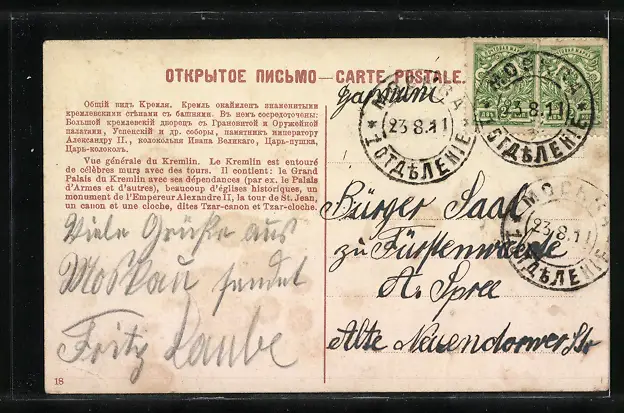 ОТКРЫТОЕ ПИСЬМО—CARTE POSTALE.
Общій видъ Кремля. Кремль окаймленъ знаменитыми
кремлевскими стѣнами съ башнями. Въ немъ сосредоточены:
Большой кремлевскій дворецъ съ Грановитой и Оружейной
палатами, Успенскій и др. соборы, памятникъ императору
Александру II., колокольня Ивана Великаго, Царь-пушка,
Царь-колоколъ.
Vue générale du Kremlin. Le Kremlin est entouré
de célèbres murs avec des tours. Il contient: le Grand
Palais du Kremlin avec ses dépendances (par ex. le Palais
d'Armes et d'autres), beaucoup d'églises historiques, un
monument de l'Empereur Alexandre II, la tour de St. Jean,
un canon et une cloche, dites Tzar-canon et Tzar-cloche.
Viele Grüße aus
Moskau sendet
Fritz Laube
18
МОСКВА
23.8.11
1 ОТДѢЛЕНІЕ
МОСКВА
23.8.11
ОТДѢЛЕНІЕ
МОСКВА
23.8.11
1 ОТДѢЛЕНІЕ
Bürger Saal
zu Fürstenwaerse
A. Spree
Alte Neuendorwer Str